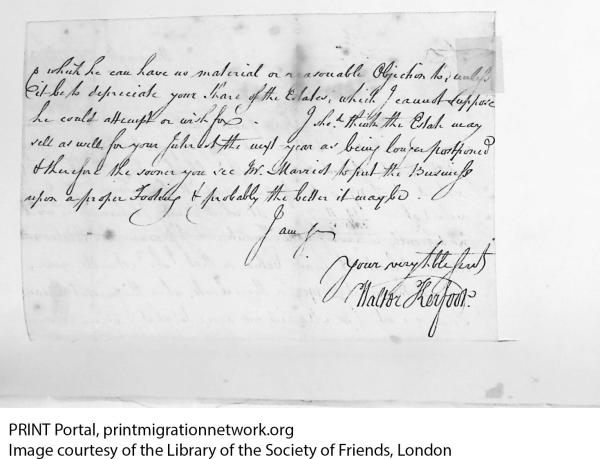 which he can have no material or reasonable Objection to, unless
it be to depreciate your Share of the Estates, which I cannot Suppose
he could attempt or wish for. I sho.d think the Estate may
sell as well for your Interest the next year as being longer postponed
& therefore the sooner you see Mr. Marriot to put the Business
upon a proper Footing & probably the better it may be.
I am Sir
Your very Hble Serv.t
Walter Kerfoot.
PRINT Portal, printmigrationnetwork.org
Image courtesy of the Library of the Society of Friends, London